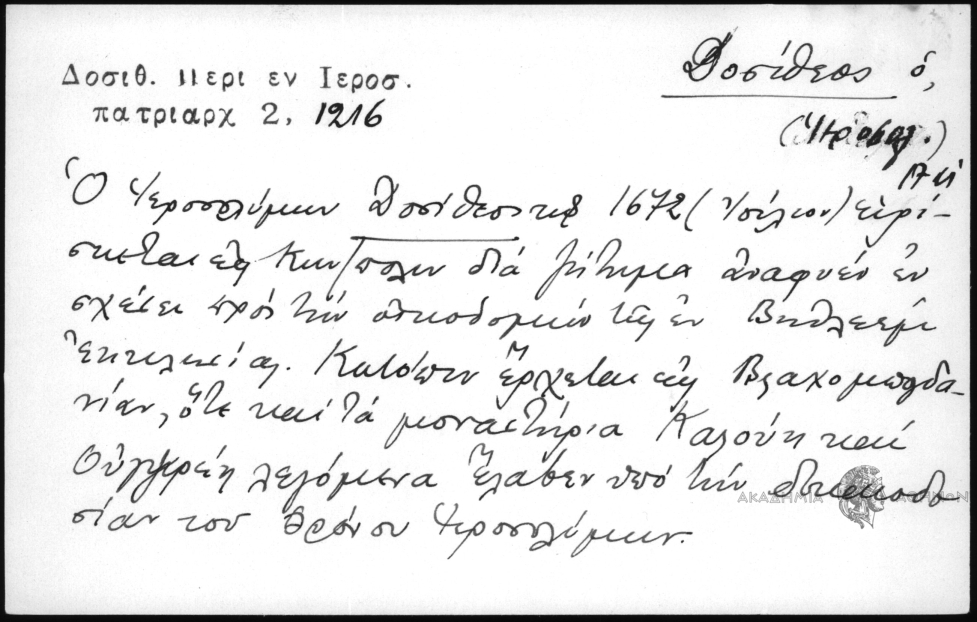 Δοσιθ. Περι εν Ιεροσ.
πατριαρχ 2, 1216
Δοσίθεος ό,
(Ἱεροσολ.)
Ὁ Ἱεροσολύμων Δοσίθεος τῷ 1672 (Ἰούλιον) εὑρί-
σκεται εἰς Κων/πολιν διά ζήτημα ἀναφυέν ἐν
σχέσει πρός τήν οἰκοδομήν τῆς ἐν Βηθλεέμ
Ἐκκλησίας. Κατόπιν ἔρχεται εἰς Βλαχομπογδα-
νίαν, ὅτε καί τά μοναστήρια Καλούη καί
λεγόμενα ἔλαβεν ὑπό τήν
σίαν του θρόνου Ἱεροσολύμων.
ΑΚΑΔΗΜΙΑ ΑΘΗΝΩΝ